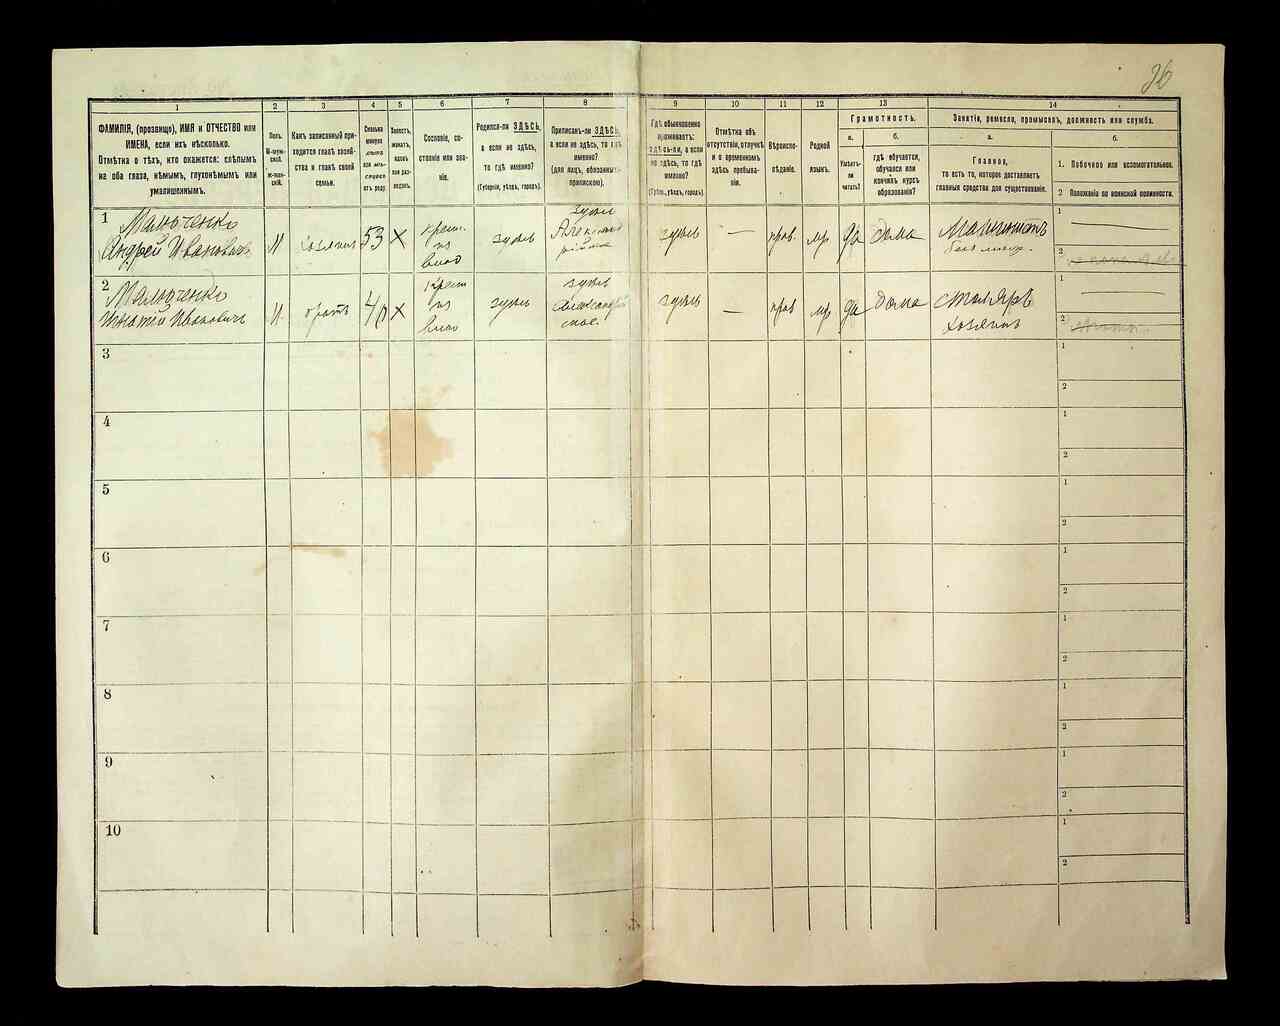 96
1
2
3
4
5
6
7
8
9
10
11
12
13
14
ФАМИЛІЯ, (прозвище), ИМЯ и ОТЧЕСТВО или
ИМЕНА, если ихъ нѣсколько.
Отмѣтка о тѣхъ, кто окажется: слѣпымъ
на оба глаза, нѣмымъ, глухонѣмымъ или
умалишеннымъ.
Полъ.
М-муж-
ской.
Ж-жен-
скій.
Какъ записанный при-
ходится главѣ хозяй-
ства и главѣ своей
семьи.
Сколько
Холостъ,
женатъ,
вдовъ
или раз-
веденъ.
Сословіе, со-
стояніе или зва-
ніе.
Родился-ли ЗДѢСЬ,
а если не здѣсь,
то гдѣ именно?
(Губернія, уѣздъ, городъ).
Приписанъ-ли ЗДѢСЬ,
а если не здѣсь, то гдѣ
именно?
(для лицъ, обязанныхъ
припискою).
Гдѣ обыкновенно
проживаетъ:
здѣсь-ли, а если
не здѣсь, то гдѣ
именно?
(Губерн., уѣздъ, городъ).
Отмѣтка объ
отсутствіи, отлучкѣ
и о временномъ
здѣсь пребыва-
ніи.
Вѣроиспо-
вѣданіе.
Родной
языкъ.
Грамотность.
а.
Умѣетъ-
ли
читать?
б.
гдѣ обучается,
обучался или
кончилъ курсъ
образованія?
Занятіе, ремесло, промыселъ, должность или служба.
а.
Главное,
то есть то, которое доставляетъ
главныя средства для существованія.
б.
1. Побочное или вспомогательное.
2 Положеніе по воинской повинности.
1
Малюченко
Андрей Ивановичъ
М
хозяинъ
53
Х
крест.
из
влад
здѣсь
здѣсь
здѣсь
—
прав.
мр
да
дома
1
2
2
Малюченко
Игнатей Ивановичъ
М.
братъ
40
Х
крест
из
влад
здѣсь
здѣсь
Александрій
ское.
здѣсь
—
прав
мр
да
дома
столяръ
хозяинъ
1
2
3
1
2
4
1
2
5
1
2
6
1
2
7
1
2
8
1
2
9
1
2
10
1
2